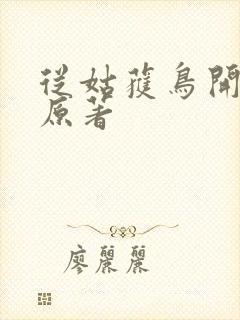 從姑蒦鳥開
原著
廖麗麗